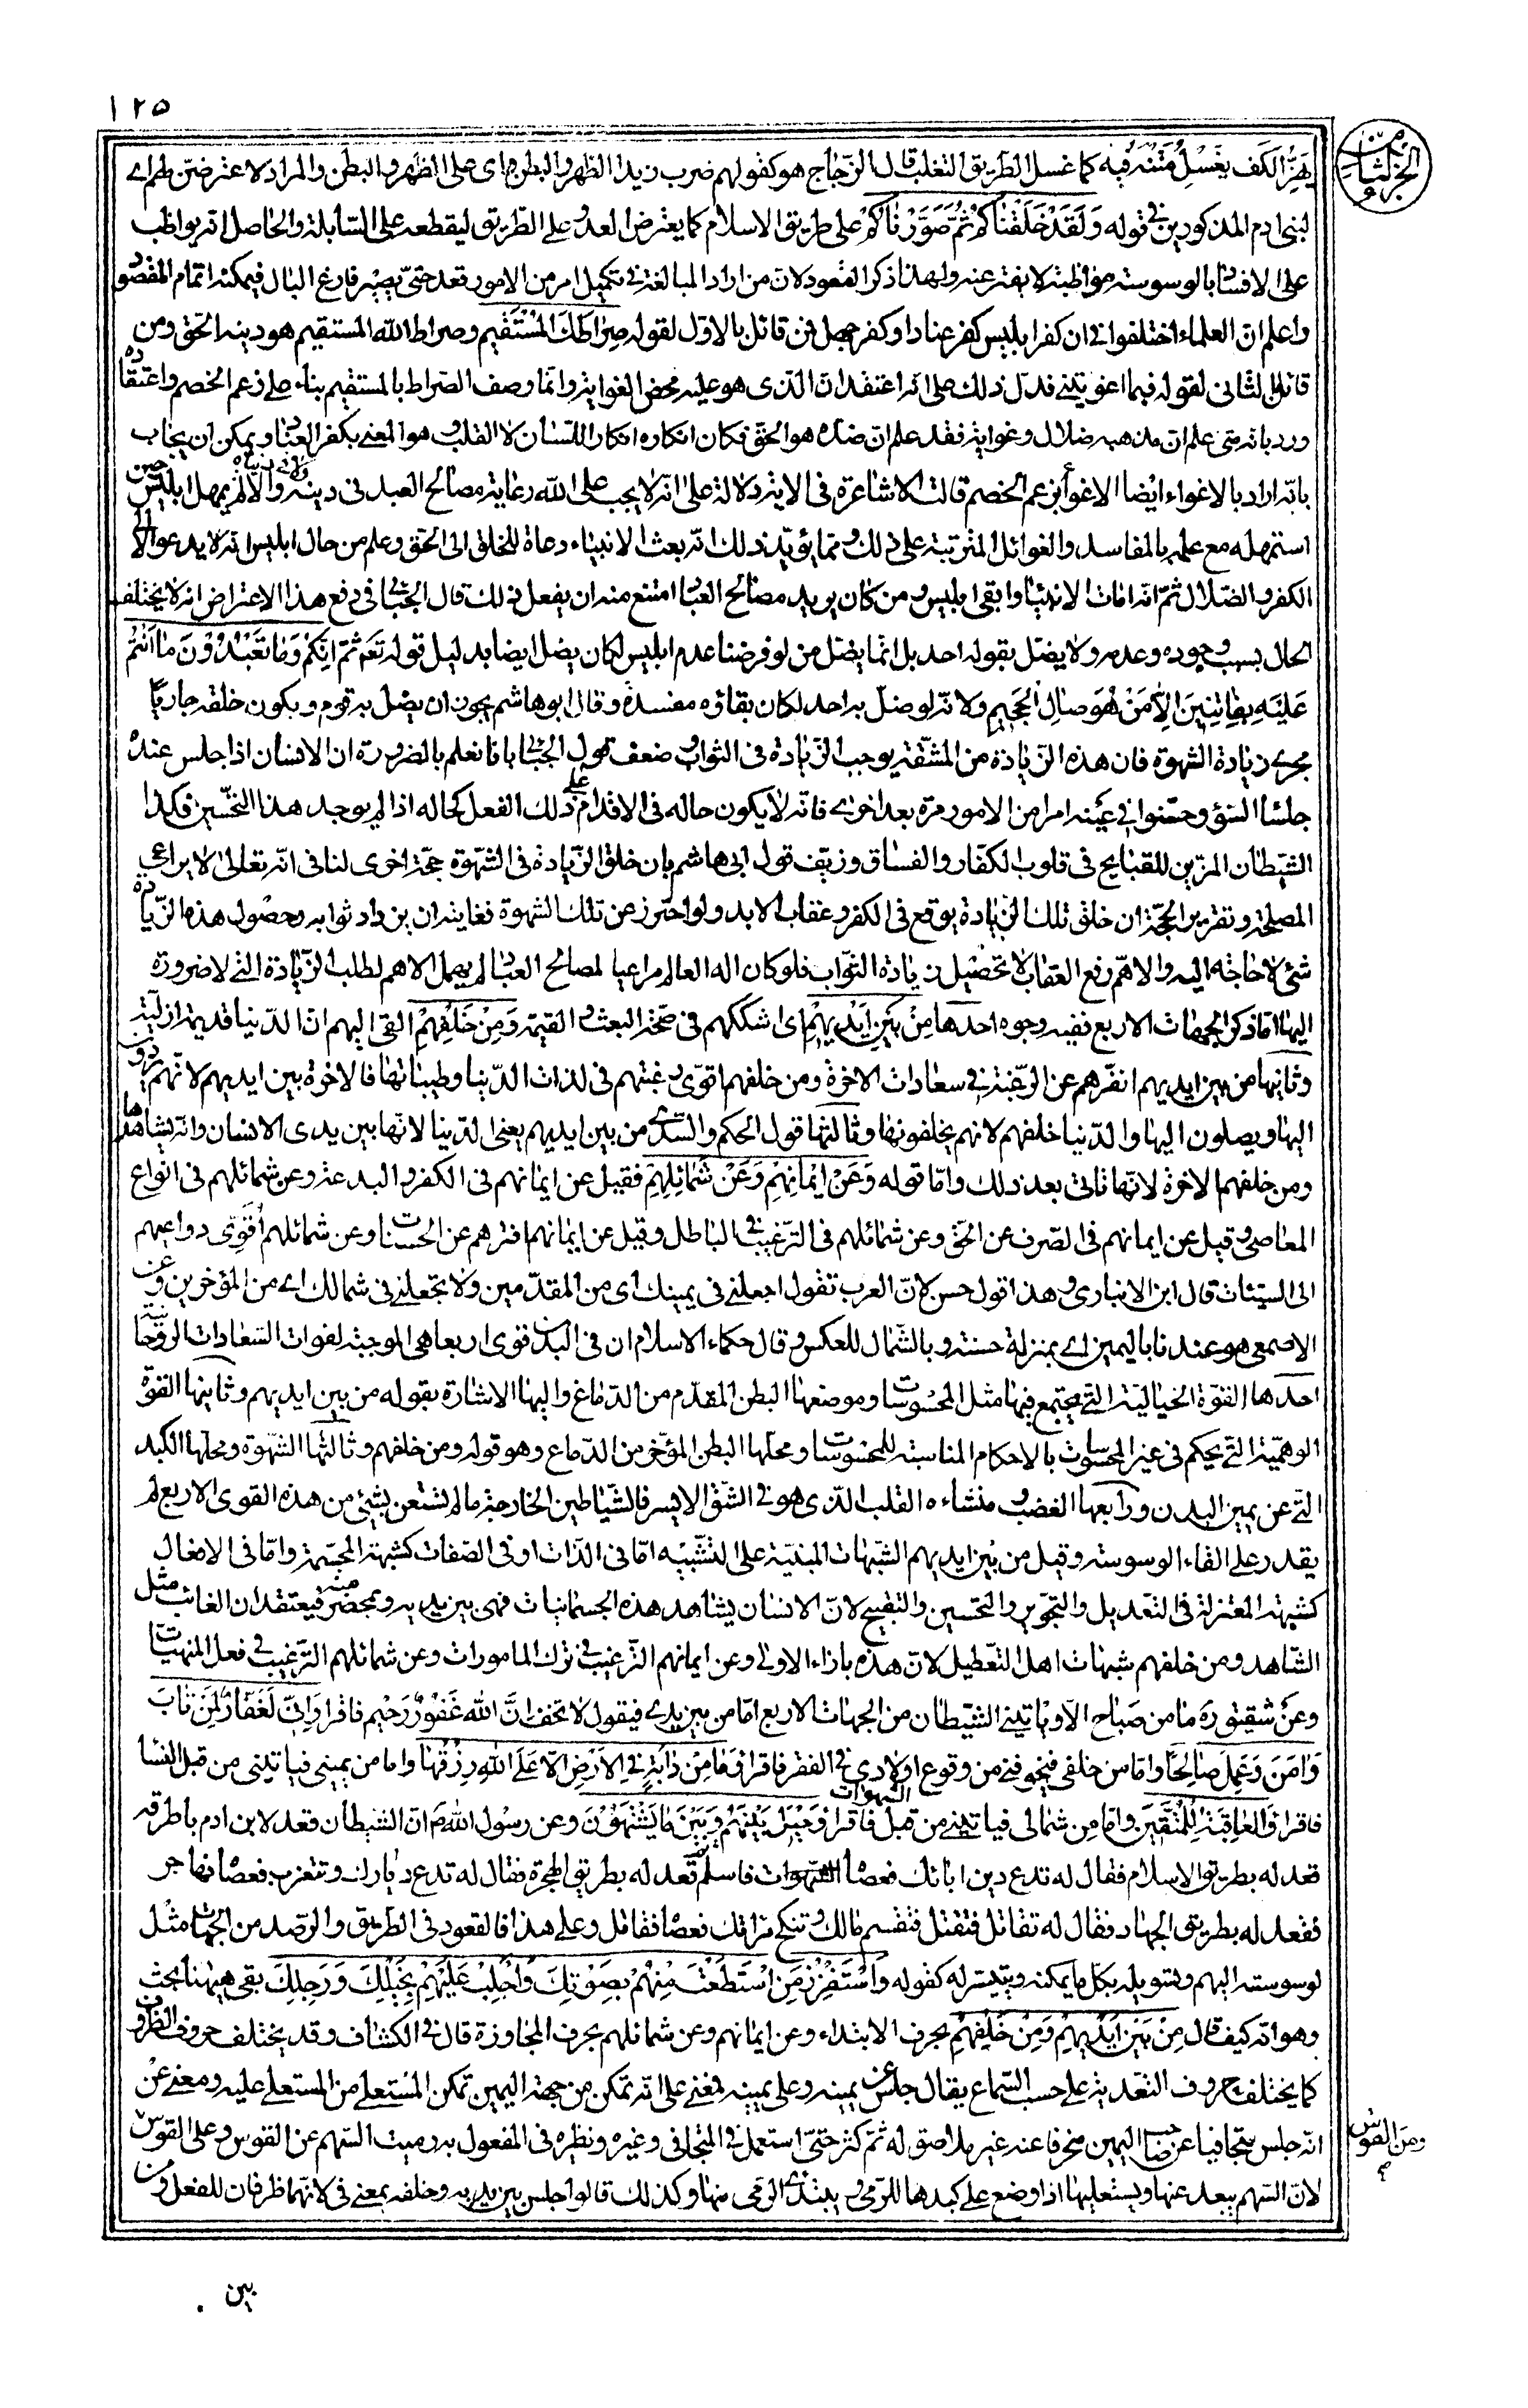 ١٢٥
الجزء الثامن
بهز الكف يعسل متنه فيه كما عسل الطريق الثعلب قال الزجاج هو كقولهم ضرب زيد الظهر والبطن اى على الظهر والبطن والمراد لاعترضن لهم اى
لبنى ادم المذكورين فى قوله وَلَقَدْ خَلَقْنَاكُمْ ثُمَّ صَوَّرْنَاكُمْ على طريق الاسلام كما يعترض العدو على الطريق ليقطعه على السابلة والحاصل انه يواظب
على الافساد بالوسوسة مواظبة لا يفتر عنه ولهذا ذكر القعود لان من اراد المبالغة فى تكميل امر من الامور قعد حتى يصير فارغ البال فيمكنه اتمام المقصود
واعلم ان العلماء اختلفوا فى ان كفر ابليس كفر عناد او كفر جهل فمن قائل بالاول لقوله صِرَاطَكَ الْمُسْتَقِيمَ وصراط الله المستقيم هو دينه الحق ومن
قائل بالثانى لقوله فبما اغويتنى فدل ذلك على انه اعتقد ان الذى هو عليه محض الغواية وانما وصف الصراط بالمستقيم بناء على زعم الخصم واعتقاده
ورد بانه متى علم ان مذهبه ضلال وغواية فقد علم ان ضده هو الحق فكان انكاره انكار اللسان لا القلب وهو المعنى بكفر العناد ويمكن ان يجاب
بانه اراد بالاغواء ايضا الاغواء بزعم الخصم قالت الاشاعرة فى الاية دلالة على انه لا يجب على الله رعاية مصالح العبد فى دينه ولا فى دنياه والا لم يمهل ابليس حين
استمهله مع علمه بالمفاسد والغوائل المترتبة على ذلك ومما يؤيد ذلك انه بعث الانبياء دعاة للخلق الى الحق وعلم من حال ابليس انه لا يدعو الا الى
الكفر والضلال ثم انه امات الانبياء وابقى ابليس ومن كان يريد مصالح العباد امتنع منه ان يفعل ذلك قال الجبائى فى دفع هذا الاعتراض انه لا يختلف
الحال بسبب وجوده وعدمه ولا يضل بقوله احد بل انما يضل من لو فرضنا عدم ابليس لكان يضل ايضا بدليل قوله تعم ثم اِنَّكُمْ وَمَا تَعْبُدُوْنَ مَا اَنْتُمْ
عَلَيْهِ بِفَاتِنِينَ اِلَّا مَنْ هُوَ صَالِ الْجَحِيمِ ولانه لو ضل به احد لكان بقاؤه مفسدة وقال ابو هاشم يجوز ان يضل به قوم ويكون خلقه جاريا
مجرى زيادة الشهوة فان هذه الزيادة من المشقة يوجب الزيادة فى الثواب وضعف قول الجبائى بانا نعلم بالضرورة ان الانسان اذا جلس عنده
جلساء السوء وحسنوا فى عينه امرا من الامور مرة بعد اخرى فانه لا يكون حاله فى الاقدام على ذلك الفعل كحاله اذا لم يوجد هذا التحسين فكذا
الشيطان المزين للقبايح فى قلوب الكفار والفساق وزيف قول ابى هاشم بان خلق الزيادة فى الشهوة حجة اخرى لنا فى انه تعالى لا يراعى
المصلحة وتقرير الحجة ان خلق تلك الزيادة يوقع فى الكفر وعقاب الابد ولو احترز عن تلك الشهوة فغايته ان يزداد ثوابه وحصول هذه الزيادة
شئ لا حاجة اليه والاهم رفع العقاب لا تحصيل زيادة الثواب فلو كان اله العالم مراعيا لمصالح العباد لم يهمل الاهم لطلب الزيادة التى لا ضرورة
اليها اما ذكر الجهات الاربع ففيه وجوه احدها مِنْ بَيْنِ اَيْدِيهِمْ اى اشككهم فى صحة البعث والقيمة وَمِنْ خَلْفِهِمْ القى اليهم ان الدنيا قديمة ازلية
وثانيها من بين ايديهم انفرهم عن الرغبة فى سعادات الاخرة ومن خلفهم اقوى رغبتهم فى لذات الدنيا وطيباتها فالاخرة بين ايديهم لانهم يردون
اليها ويصلون اليها والدنيا خلفهم لانهم يخلفونها وثالثها قول الحكم والسدى من بين ايديهم يعنى الدنيا لانها بين يدى الانسان وانه يشاهدها
ومن خلفهم الاخرة لانها تاتى بعد ذلك واما قوله وَعَنْ اَيْمَانِهِمْ وَعَنْ شَمَائِلِهِمْ فقيل عن ايمانهم فى الكفر والبدعة وعن شمائلهم فى انواع
المعاصى وقيل عن ايمانهم فى الصرف عن الحق وعن شمائلهم فى الترغيب فى الباطل وقيل عن ايمانهم افترهم عن الحسنات وعن شمائلهم اُقَوِّى دواعيهم
الى السيئات قال ابن الانبارى وهذا قول حسن لان العرب تقول اجعلنى فى يمينك اى من المقدمين ولا تجعلنى فى شمالك اى من المؤخرين وعن
الاصمعى هو عندنا باليمين اى بمنزلة حسنة وبالشمال للعكس وقال حكماء الاسلام ان فى البدن قوى اربعا هى الموجبة لفوات السعادات الروحانية
احدها القوة الخيالية التى يجتمع فيها مثل المحسوسات وموضعها البطن المقدم من الدماغ واليها الاشارة بقوله من بين ايديهم وثانيها القوة
الوهمية التى يحكم فى غير المحسوسات بالاحكام المناسبة للمحسوسات ومحلها البطن المؤخر من الدماغ وهو قوله ومن خلفهم وثالثها الشهوة ومحلها الكبد
التى عن يمين البدن ورابعها الغضب ومنشاءه القلب الذى هو فى الشق الايسر فالشياطين الخارجة ما لم تستعن بشئ من هذه القوى الاربع لم
يقدر على القاء الوسوسة وقيل من بين ايديهم الشبهات المبنية على التشبيه اما فى الذات او فى الصفات كشبهة المجسمة واما فى الافعال
كشبهة المعتزلة فى التعديل والتجوير والتحسين والتقبيح لان الانسان يشاهد هذه الجسمانيات فهى بين يديه وبمحضر منه فيعتقد ان الغائب مثل
الشاهد ومن خلفهم شبهات اهل التعطيل لان هذه بازاء الاولى وعن ايمانهم الترغيب فى ترك المامورات وعن شمائلهم الترغيب فى فعل المنهيات
وعن شقيق ما من صباح الا وياتينى الشيطان من الجهات الاربع اما من بين يدى فيقول لا تخف انَّ اللّٰه غَفُورٌ رَحِيم فاقرا وَاِنِّى لَغَفَّارٌ لِمَنْ تَابَ
وَاٰمَنَ وَعَمِلَ صَالِحًا واما من خلفى فيخوفنى من وقوع اولادى فى الفقر فاقرا وَمَا مِنْ دَابَّةٍ فِى الْاَرْضِ اِلَّا عَلَى اللّٰهِ رِزْقُهَا واما من يمينى فياتينى من قبل النساء
فاقرا وَالْعَاقِبَةُ لِلْمُتَّقِينَ واما من شمالى فياتينى من قبل الشهوات فاقرا وَحِيلَ بَيْنَهُمْ وَبَيْنَ مَا يَشْتَهُوْنَ وعن رسول الله ص ان الشيطان قعد لابن ادم باطرقه
قعد له بطريق الاسلام فقال له تدع دين ابائك فعصاه فاسلم ثم قعد له بطريق الهجرة فقال له تدع ديارك وتتغرب فعصاه فهاجر
فقعد له بطريق الجهاد فقال له تقاتل فتقتل فتقسم مالك وتنكح مراتك فعصاه فقاتل وعلى هذا فالقعود فى الطريق والرصد من الجهات مثل
لوسوسته اليهم وتسويله بكل ما يمكنه ويتيسر له كقوله وَاسْتَفْزِزْ مَنِ اسْتَطَعْتَ مِنْهُمْ بِصَوْتِكَ وَاَجْلِبْ عَلَيْهِمْ بِخَيْلِكَ وَرَجِلِكَ بقى ههنا بحث
وهو انه كيف قال مِنْ بَيْنِ اَيْدِيهِمْ وَمِنْ خَلْفِهِمْ بحرف الابتداء وعن ايمانهم وعن شمائلهم بحرف المجاوزة قال فى الكشاف وقد يختلف حروف الظروف
كما يختلف حروف التعدية على حسب السماع يقال جلس عن يمينه وعلى يمينه فمعنى على انه تمكن من جهة اليمين تمكن المستعلى من المستعلى عليه ومعنى عن
انه جلس متجافيا عن صاحب اليمين منحرفا عنه غير ملاصق له ثم كثر حتى استعمل فى المتجافى وغيره ونظيره فى المفعول به رميت السهم عن القوس وعلى القوس
ومن القوس
لان السهم يبعد عنها ويستعليها اذا وضع على كبدها للرمى ويبتدئ الرمى منها وكذلك قالوا جلس بين يديه وخلفه بمعنى فى لانهما ظرفان للفعل ومن
بين